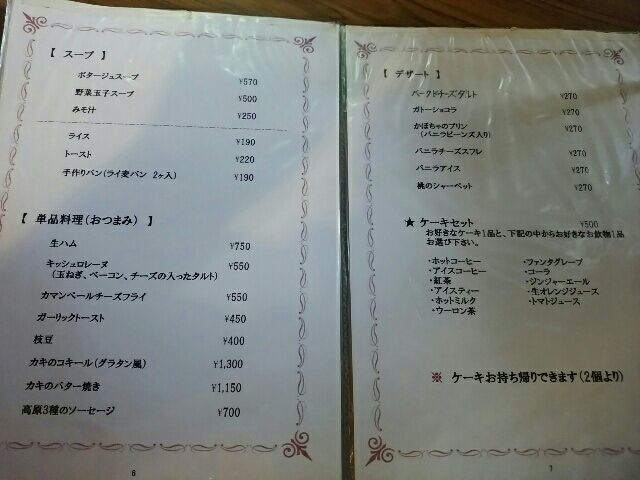 【 スープ 】
ポタージュスープ ¥570
野菜玉子スープ ¥500
みそ汁 ¥250
ライス ¥190
トースト ¥220
手作りパン(ライ麦パン 2ヶ入) ¥190
【 単品料理(おつまみ) 】
生ハム ¥750
キッシュロレーヌ ¥550
(玉ねぎ、ベーコン、チーズの入ったタルト)
カマンベールチーズフライ ¥550
ガーリックトースト ¥450
枝豆 ¥400
カキのコキール(グラタン風) ¥1,300
カキのバター焼き ¥1,150
高原3種のソーセージ ¥700
6
【 デザート 】
ベークドチーズタルト ¥270
ガトーショコラ ¥270
かぼちゃのプリン ¥270
(バニラビーンズ入り)
バニラチーズスフレ ¥270
バニラアイス ¥270
桃のシャーベット ¥270
★ ケーキセット ¥500
お好きなケーキ1品と、下記の中からお好きなお飲物1品
お選び下さい。
・ホットコーヒー
・アイスコーヒー
・紅茶
・アイスティー
・ホットミルク
・ウーロン茶
・ファンタグレープ
・コーラ
・ジンジャーエール
・生オレンジジュース
・トマトジュース
※ ケーキお持ち帰りできます(2個より)
7